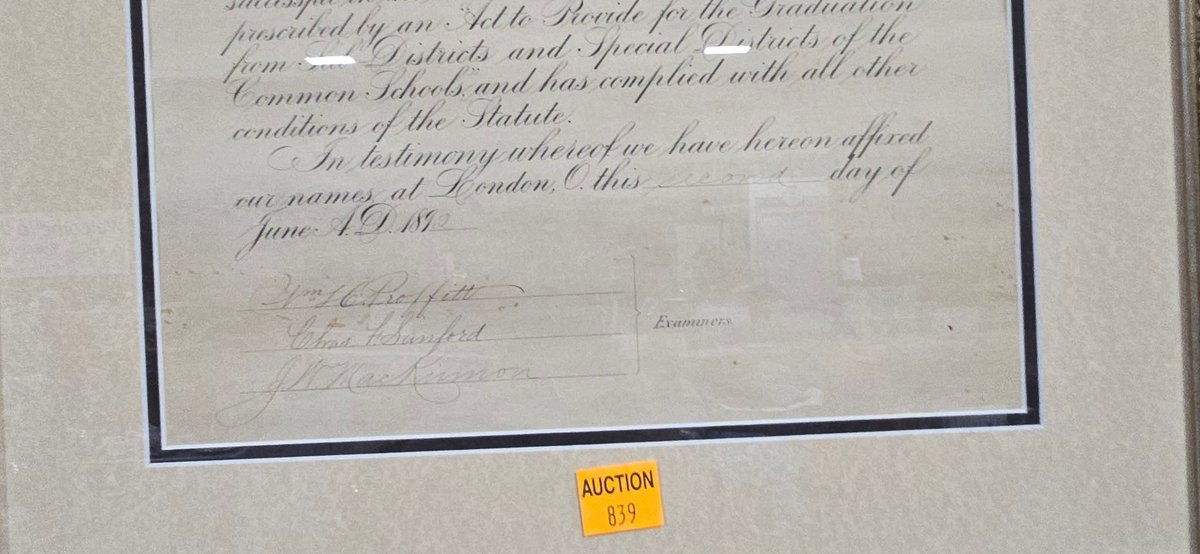 prescribed by an Act to Provide for the Graduation
from Sub Districts and Special Districts of the
Common Schools, and has complied with all other
conditions of the Statute.
In testimony whereof we have hereon affixed
our names, at London, O. this second day of
June A.D. 1892
Wm H C Proffitt
Chas F Sanford
J. W. MacKinnon
Examiners.
AUCTION
839